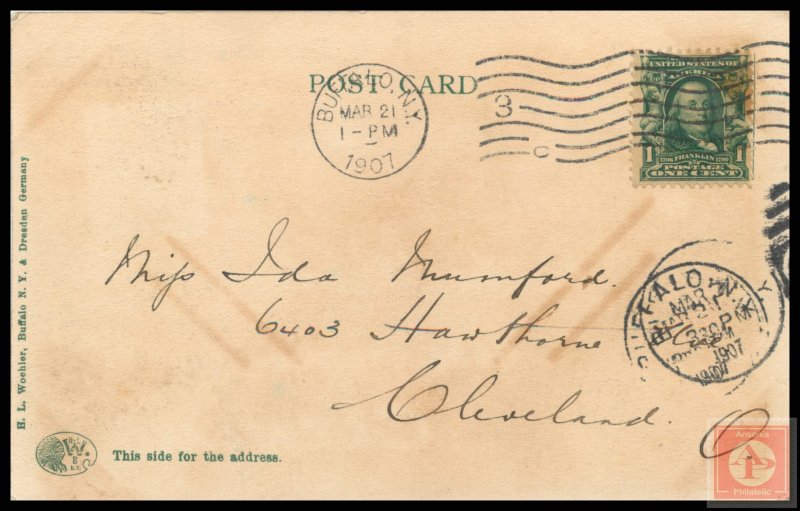 POST CARD
BUFFALO, N.Y.
MAR 21
1-PM
1907
3
C
UNITED STATES OF
AMERICA
1 1706 FRANKLIN 1790 1
POSTAGE
ONE CENT
Miss Ida Mumford.
6403 Hawthorne
Cleveland.
O.
BUFFALO, N.Y.
MAR
1907
1907
H. L. Woehler, Buffalo N. Y. & Dresden Germany
W.
B
N.Y.
This side for the address.
Ansonia
AP
Philatelic